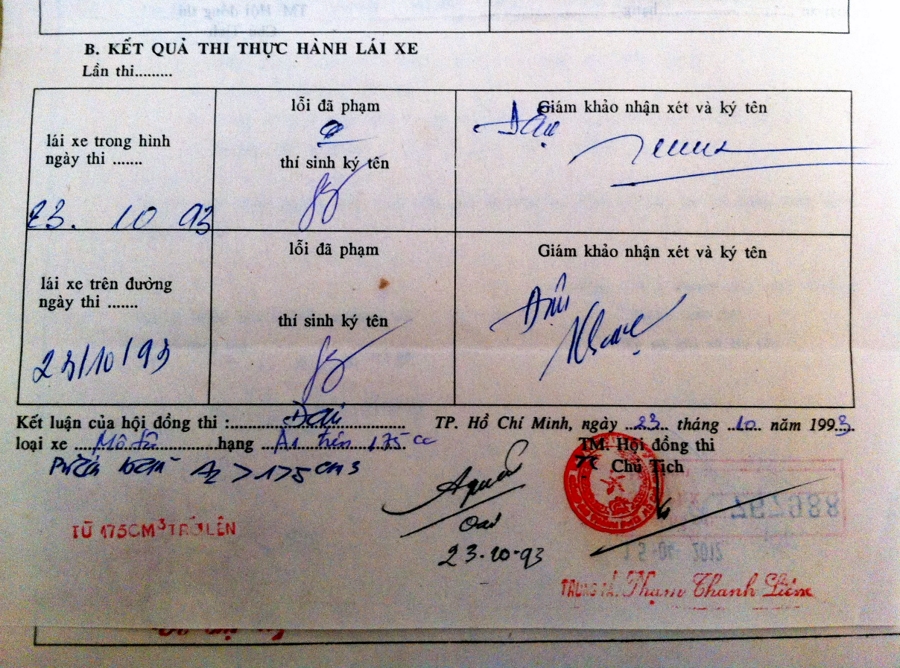 B. KẾT QUẢ THI THỰC HÀNH LÁI XE
Lần thi.........
lái xe trong hình
ngày thi ......
23. 10 93
lỗi đã phạm
thí sinh ký tên
Giám khảo nhận xét và ký tên
lái xe trên đường
ngày thi .......
23/10/93
lỗi đã phạm
thí sinh ký tên
Giám khảo nhận xét và ký tên
Kết luận của hội đồng thi : Đạt
loại xe Mô tô hạng A1 trên 175 cc
A2 > 175 cm3
TỪ 175CM3 TRỞ LÊN
23-10-93
TP. Hồ Chí Minh, ngày 23 tháng 10 năm 1993
TM. Hội đồng thi
Chủ Tịch
TRUNG TÁ: Phạm Thanh Liêm